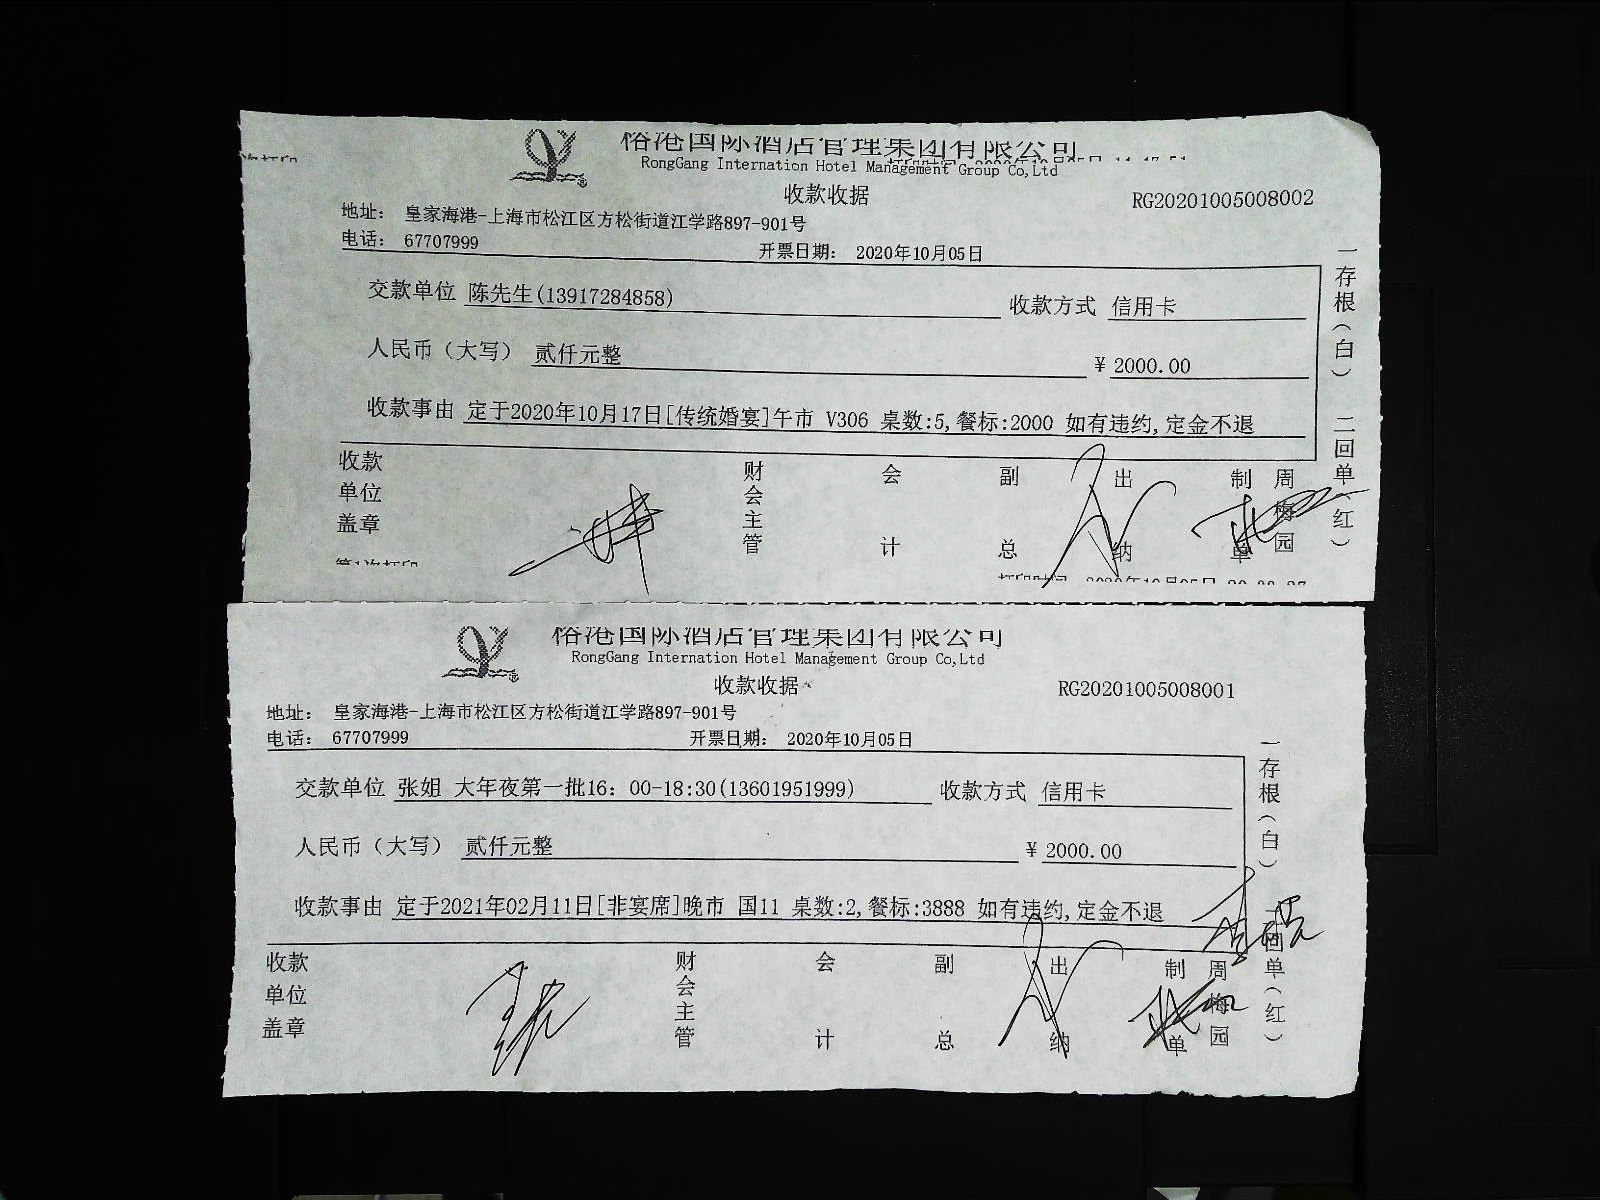 榕港国际酒店管理集团有限公司
RongGang Internation Hotel Management Group Co,Ltd
收款收据
RG20201005008002
地址： 皇家海港-上海市松江区方松街道江学路897-901号
电话： 67707999
开票日期： 2020年10月05日
交款单位 陈先生(13917284858) 收款方式 信用卡
人民币（大写） 贰仟元整 ¥ 2000.00
收款事由 定于2020年10月17日[传统婚宴]午市 V306 桌数:5,餐标:2000 如有违约,定金不退
一存根（白） 二回单（红）
收款单位盖章 财会主管 会计 副总 出纳 制单 周梅园
第1次打印
榕港国际酒店管理集团有限公司
RongGang Internation Hotel Management Group Co,Ltd
收款收据
RG20201005008001
地址： 皇家海港-上海市松江区方松街道江学路897-901号
电话： 67707999
开票日期： 2020年10月05日
交款单位 张姐 大年夜第一批16：00-18:30(13601951999) 收款方式 信用卡
人民币（大写） 贰仟元整 ¥ 2000.00
收款事由 定于2021年02月11日[非宴席]晚市 国11 桌数:2,餐标:3888 如有违约,定金不退
一存根（白） 回单（红）
收款单位盖章 财会主管 会计 副总 出纳 制单 周梅园